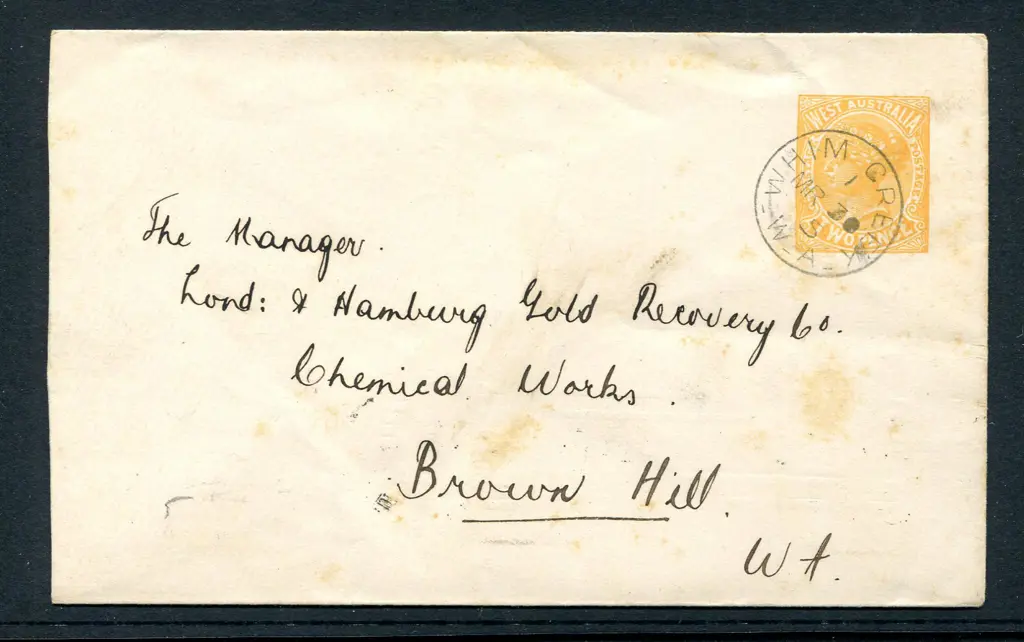 WEST AUSTRALIA
POSTAGE
WHIM CREEK
1
MR 30
S
W-A
The Manager.
Lond: & Hamburg Gold Recovery Co.
Chemical Works.
Brown Hill.
W A.